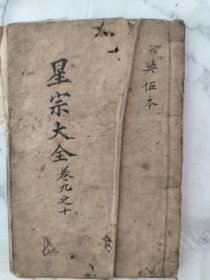 星宗大全
卷九之十
英伍本